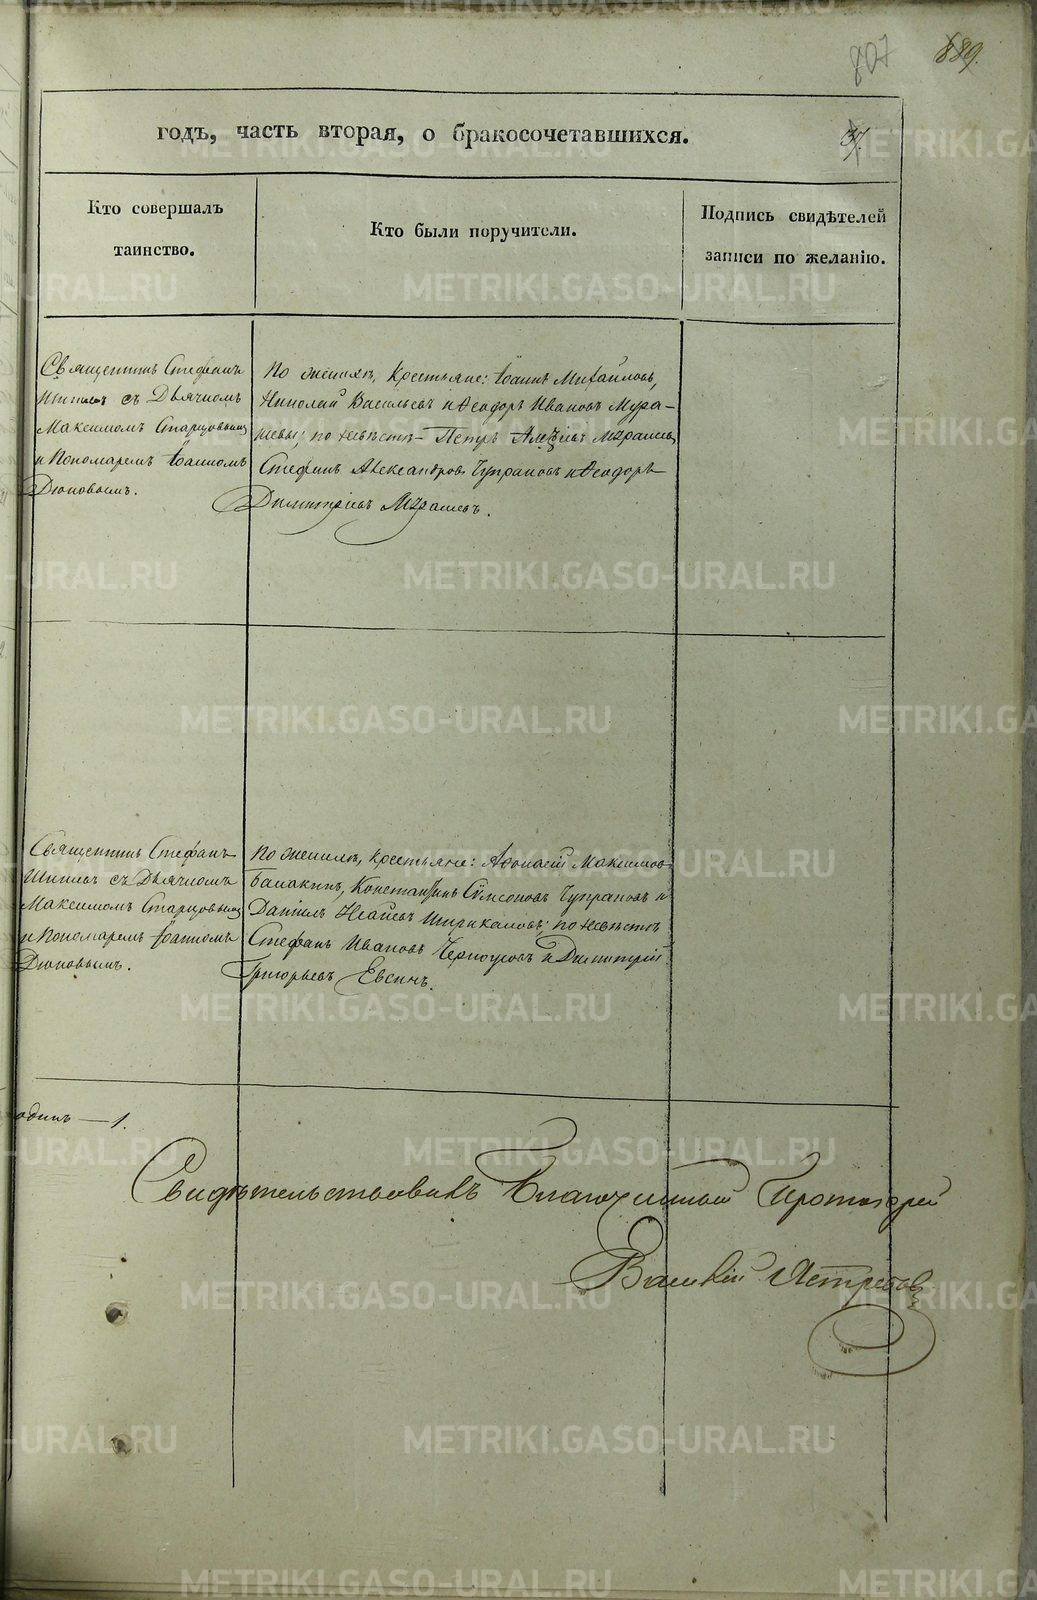 807
889.
годъ, часть вторая, о бракосочетавшихся.
37.
Кто совершалъ
таинство.
Кто были поручители.
Подпись свидѣтелей
записи по желанію.
Священникъ Стефанъ
съ Дьячкомъ
Максимомъ Старцовымъ
и Пономаремъ Іоанномъ
Дюковымъ.
По женихѣ, крестьяне: Іоаннъ Михайловъ,
Николай Васильевъ и Ѳеодоръ Ивановъ Мура-
шевы; по невѣстѣ - Петръ Алексѣевъ Мурашевъ
Стефанъ Александровъ Чупраковъ и Ѳеодоръ
Димитріевъ Мурашевъ.
Священникъ Стефанъ
съ Дьячкомъ
Максимомъ Старцовымъ
и Пономаремъ Іоанномъ
Дюковымъ.
По женихѣ, крестьяне: Аѳонасій Максимовъ
Балакинъ, Константинъ Чупраковъ и
Даніилъ Исаіевъ; по невѣстѣ
Стефанъ Ивановъ Черноусовъ и Димитрій
Григорьевъ Евсинъ.
одинъ — 1.
Свидѣтельствовалъ Благочинный Протоіерей
Василій Ястребовъ
METRIKI.GASO-URAL.RU